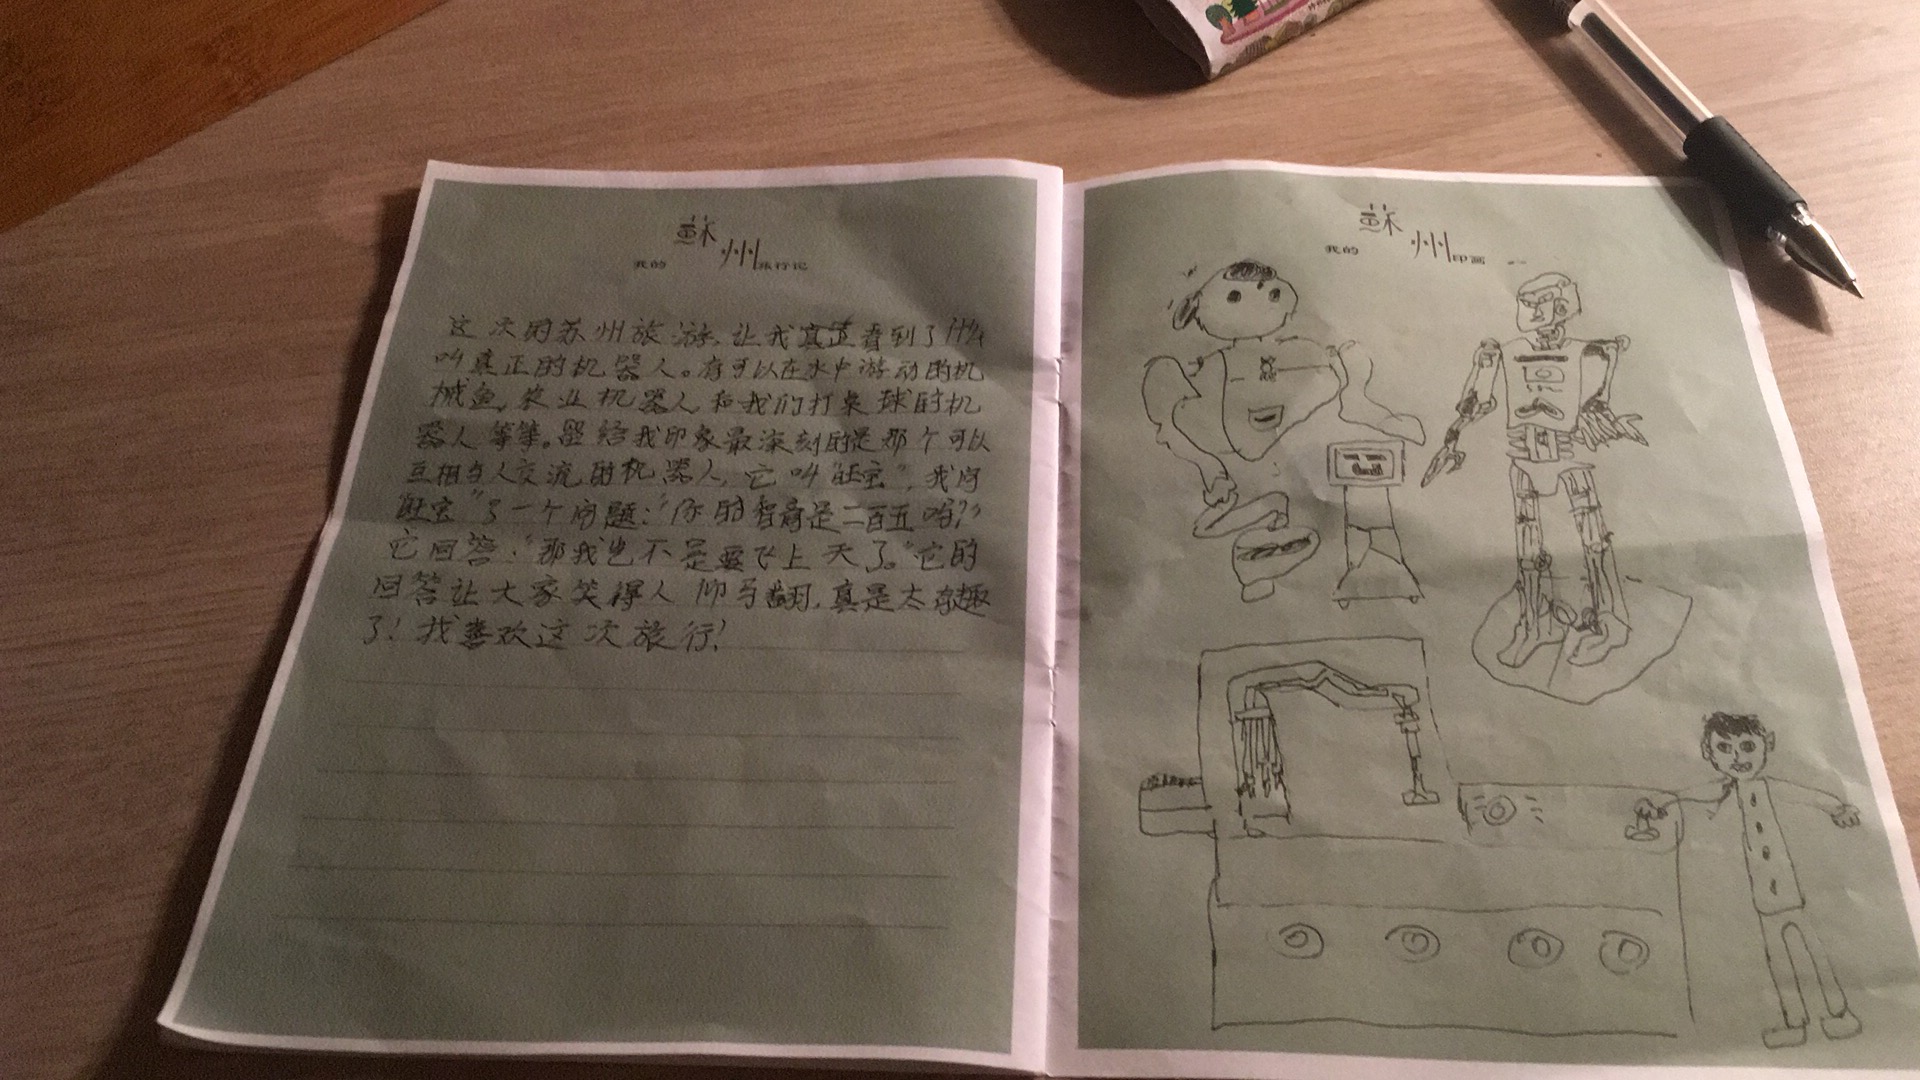 蘇州
我的 旅行记
这次的苏州旅游,让我真正看到了什么
叫真正的机器人。有可以在水中游动的机
械鱼,农业机器人和我们打桌球的机
器人等等。留给我印象最深刻的是那个可以
互相与人交流的机器人,它叫“旺宝”,我问
“旺宝”了一个问题:“你的智商是二百五吗?”
它回答:“那我岂不是要飞上天了。”它的
回答让大家笑得人仰马翻,真是太有趣
了!我喜欢这次旅行!
蘇州
我的 印画